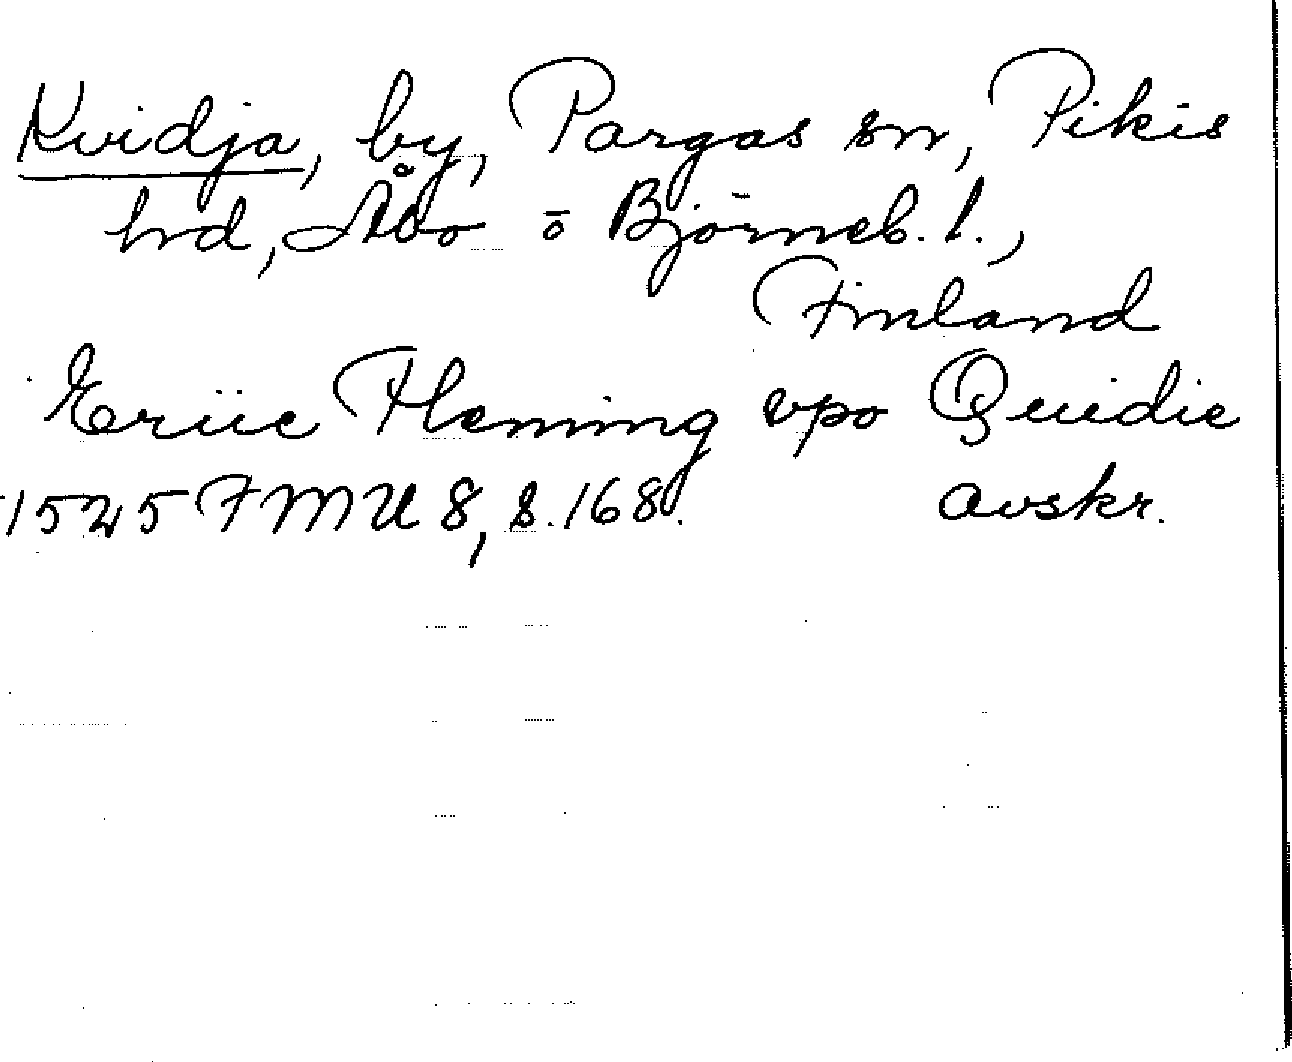 Kvidja, by, Pargas sn, Pikis
hrd, Åbo o Björneb. l.,
Finland
Eriic Fleming vpo Quidie
1525 FMU 8, s. 168. avskr.